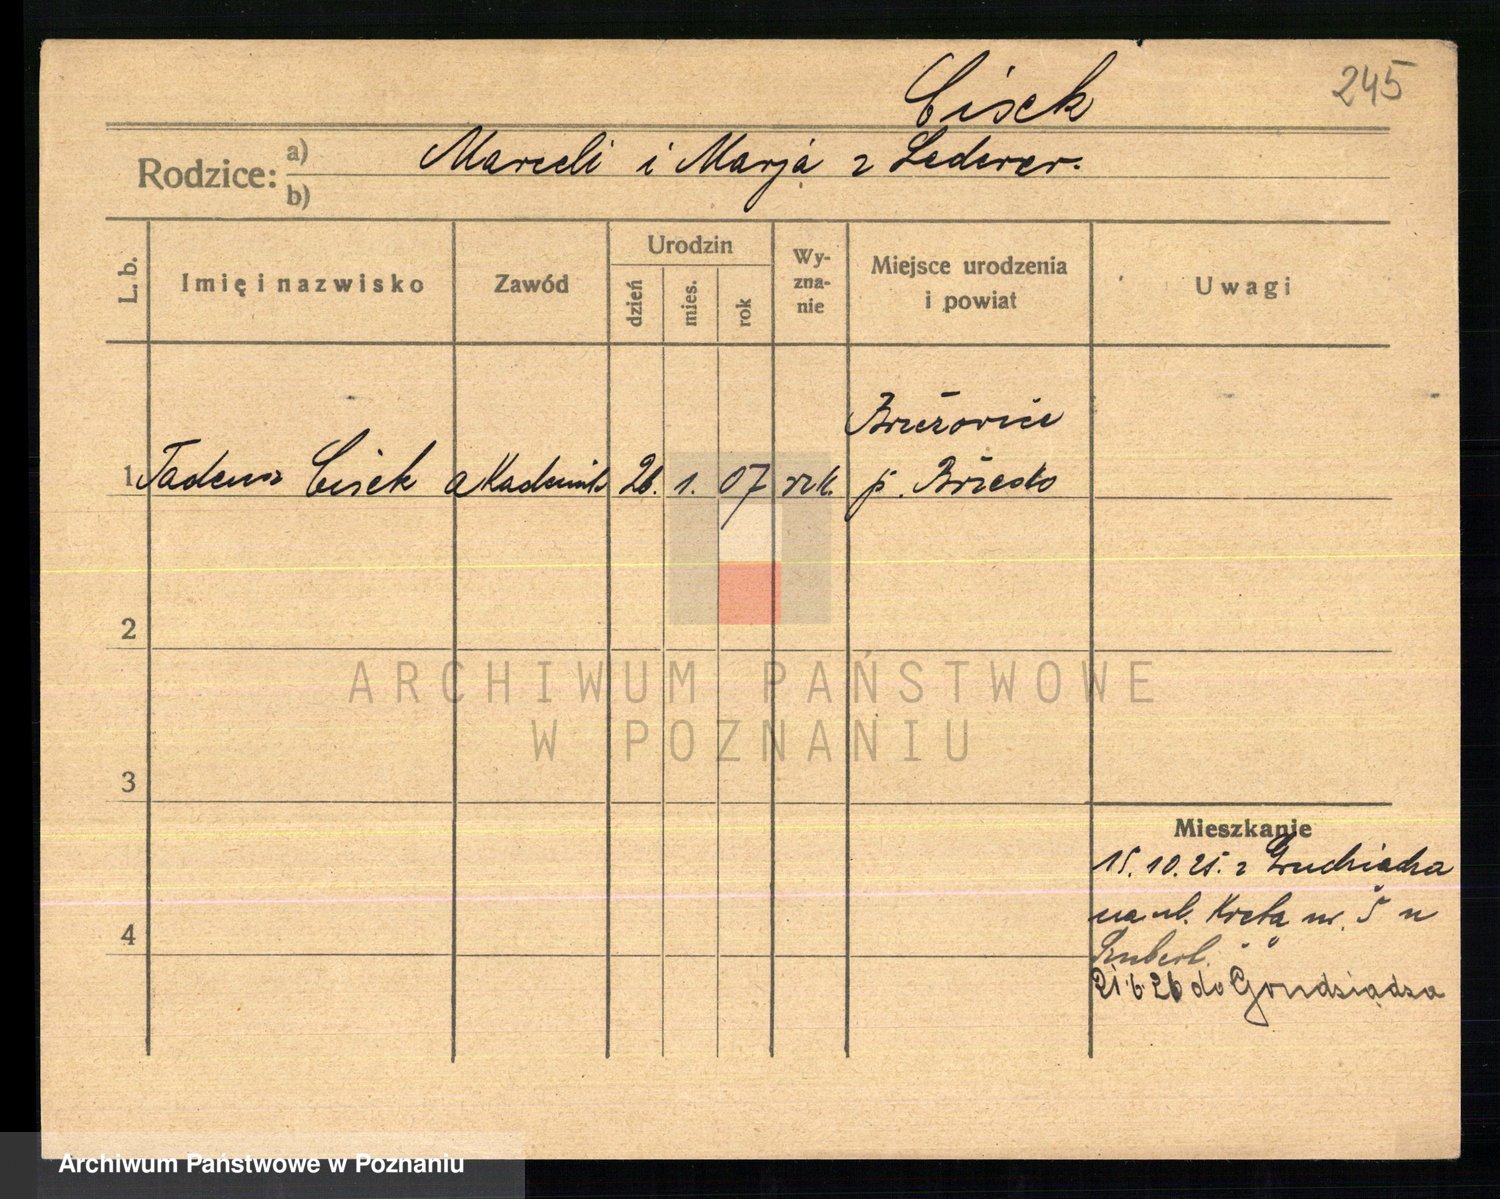 245
Cisek
Rodzice: a) Marceli i Marja z Lederer.
b)
L. b. Imię i nazwisko Zawód Urodzin dzień mies. rok Wy-zna-nie Miejsce urodzenia i powiat Uwagi
Brzezowiec
1 Tadeusz Cisek akademik 26. 1. 07 rzk. p. Brzesko
2
ARCHIWUM PAŃSTWOWE
W POZNANIU
3
Mieszkanie
15. 10. 25. z Grudziądza
na ul. Kręta nr. 5 u
4
21.6.26 do Grudziądza
Archiwum Państwowe w Poznaniu